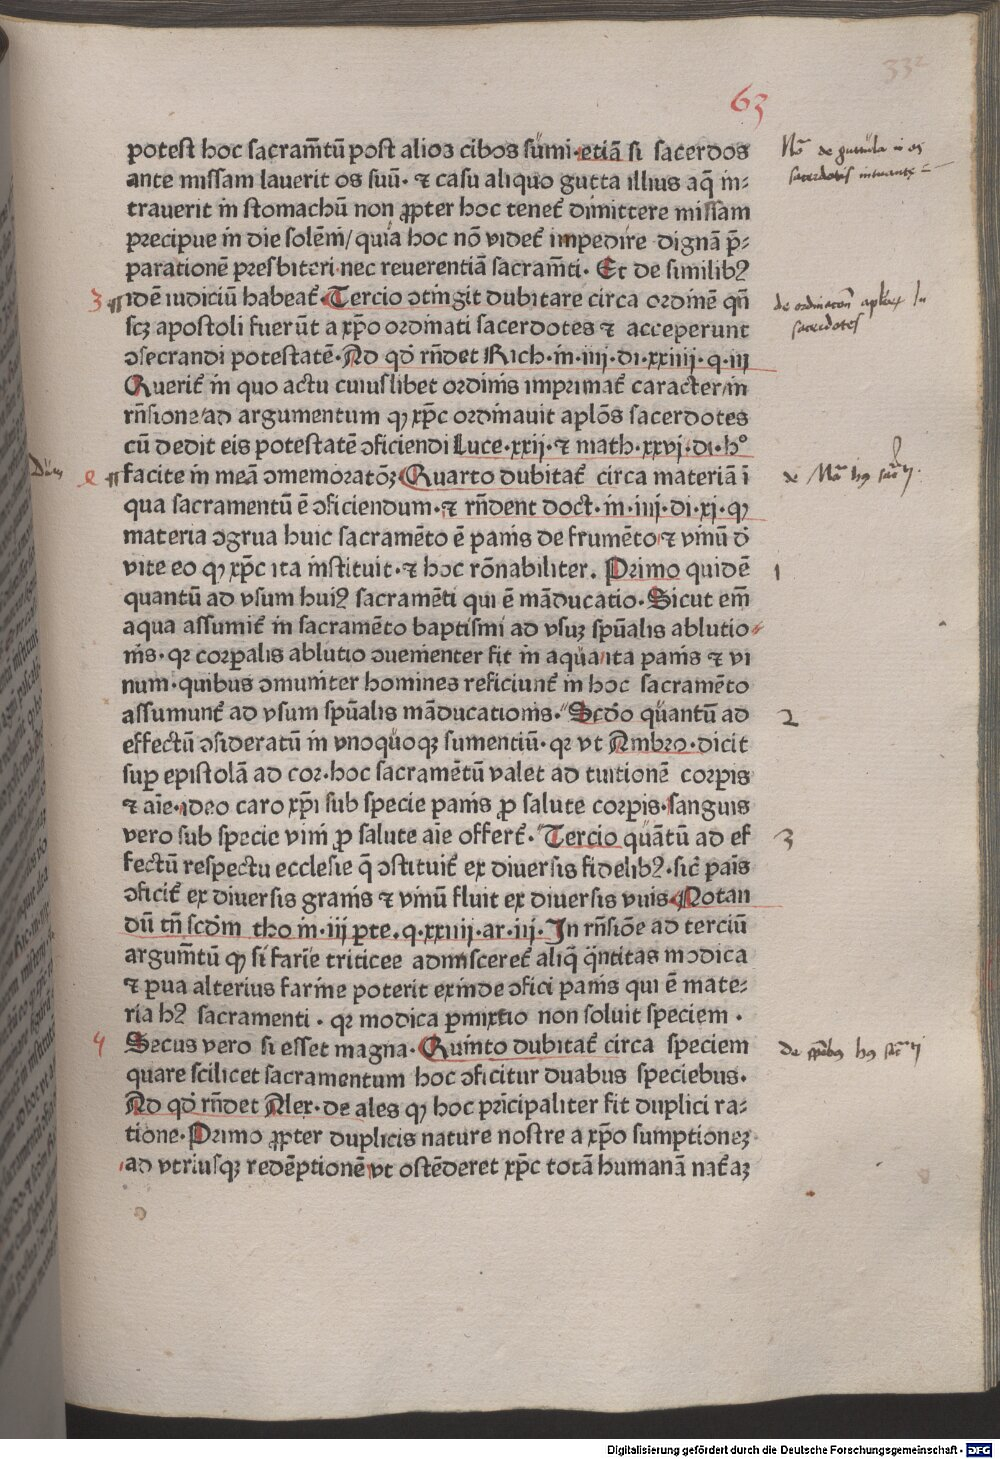 332
63
potest hoc sacram̄tū post alioꝝ cibos sumi·etiā si sacerdos
ante missam lauerit os suū· ⁊ casu aliquo gutta illius aq̄ in⸗
trauerit in stomachū non ꝓpter hoc tenet᷑ dimittere missam
precipue in die solēni/ quia hoc nō videt᷑ impedire dignā p̄⸗
parationē presbiteri·nec reuerentiā sacram̄ti· Et de similibꝰ
3 idē iudiciū habeat᷑· Tercio ꝯtingit dubitare circa ordinē qn̄
scꝫ apostoli fuerūt a xp̄o ordinati sacerdotes ⁊ acceperunt
ꝯsecrandi potestatē· Ad qd̄ rn̄det Rich·in·iiij·di·xxiiij·q·iij
Querit᷑ in quo actu cuiuslibet ordinis imprimat᷑ caracter/in
rn̄sione/ad argumentum ꝙ xp̄c ordinauit aplōs sacerdotes
cū dedit eis potestatē ꝯficiendi Luce·xxij·⁊ math·xxvj·di·h°
facite in meā ꝯmemoratōꝫ·Quarto dubitat᷑ circa materiā ī
qua sacramentū ē ꝯficiendum·⁊ rn̄dent doct·in·iiij·di·xj·ꝙ
materia ꝯgrua huic sacramēto ē panis de frumēto ⁊ vinū d̄
vite eo ꝙ xp̄c ita instituit·⁊ hoc rōnabiliter. Primo quidē
1
quantū ad vsum huiꝰ sacramēti qui ē māducatio·Sicut em̄
aqua assumit᷑ in sacramēto baptismi ad vsuꝫ spūalis ablutio⸗
nis·qꝛ corꝑalis ablutio ꝯuenienter fit in aqua·ita panis ⁊ vi
num·quibus ꝯmuniter homines reficiunt᷑ in hoc sacramēto
assumunt᷑ ad vsum spūalis māducationis· Scd̄o quantū ad
2
effectū ꝯsideratū in vnoquoqꝫ sumentiū·qꝛ vt Ambro·dicit
suꝑ epistolā ad cor·hoc sacramētū valet ad tuitionē corꝑis
⁊ aīe·ideo caro xp̄i sub specie panis ꝓ salute corꝑis·sanguis
vero sub specie vini ꝓ salute aīe offert᷑· Tercio quātū ad ef
3
fectū respectu ecclesie q̄ ꝯstituit᷑ ex diuersis fidelibꝰ·sic̄ panis
ꝯficit᷑ ex diuersis granis ⁊ vinū fluit ex diuersis vuis·Notan
dū tn̄ scd̄m tho in·iij ꝑte·q·xxiiij·ar·iij·In rn̄siōe ad terciū
argum̄tū ꝙ si farīe triticee admisceret᷑ aliq̄ q̈ntitas modica
⁊ ꝑua alterius farine poterit exinde ꝯfici panis qui ē mate⸗
ria hꝰ sacramenti · qꝛ modica ꝑmixtio non soluit speciem ·
4 Secus vero si esset magna·Quinto dubitat᷑ circa speciem
quare scilicet sacramentum hoc ꝯficitur duabus speciebus·
Ad qd̄ rn̄det Alex·de ales ꝙ hoc prīcipaliter fit duplici ra⸗
tione·Primo ꝓpter duplicis nature nostre a xp̄o sumptioneꝫ
ad vtriusqꝫ redēptionē vt ostēderet xp̄c totā humanā nat᷑aꝫ
Digitalisierung gefördert durch die Deutsche Forschungsgemeinschaft · DFG